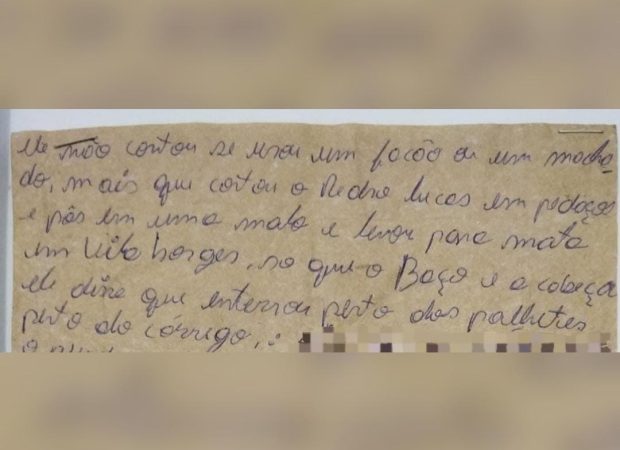 Ele não contou se usou um facão ou um macha-
do, mais que cortou o Pedro Lucas em pedaços
e pôs em uma mala e levou para mata
em Vila borges, so que o Baço e a cabeça
ele dise que enterrou perto dos palhetes
perto do córrego,